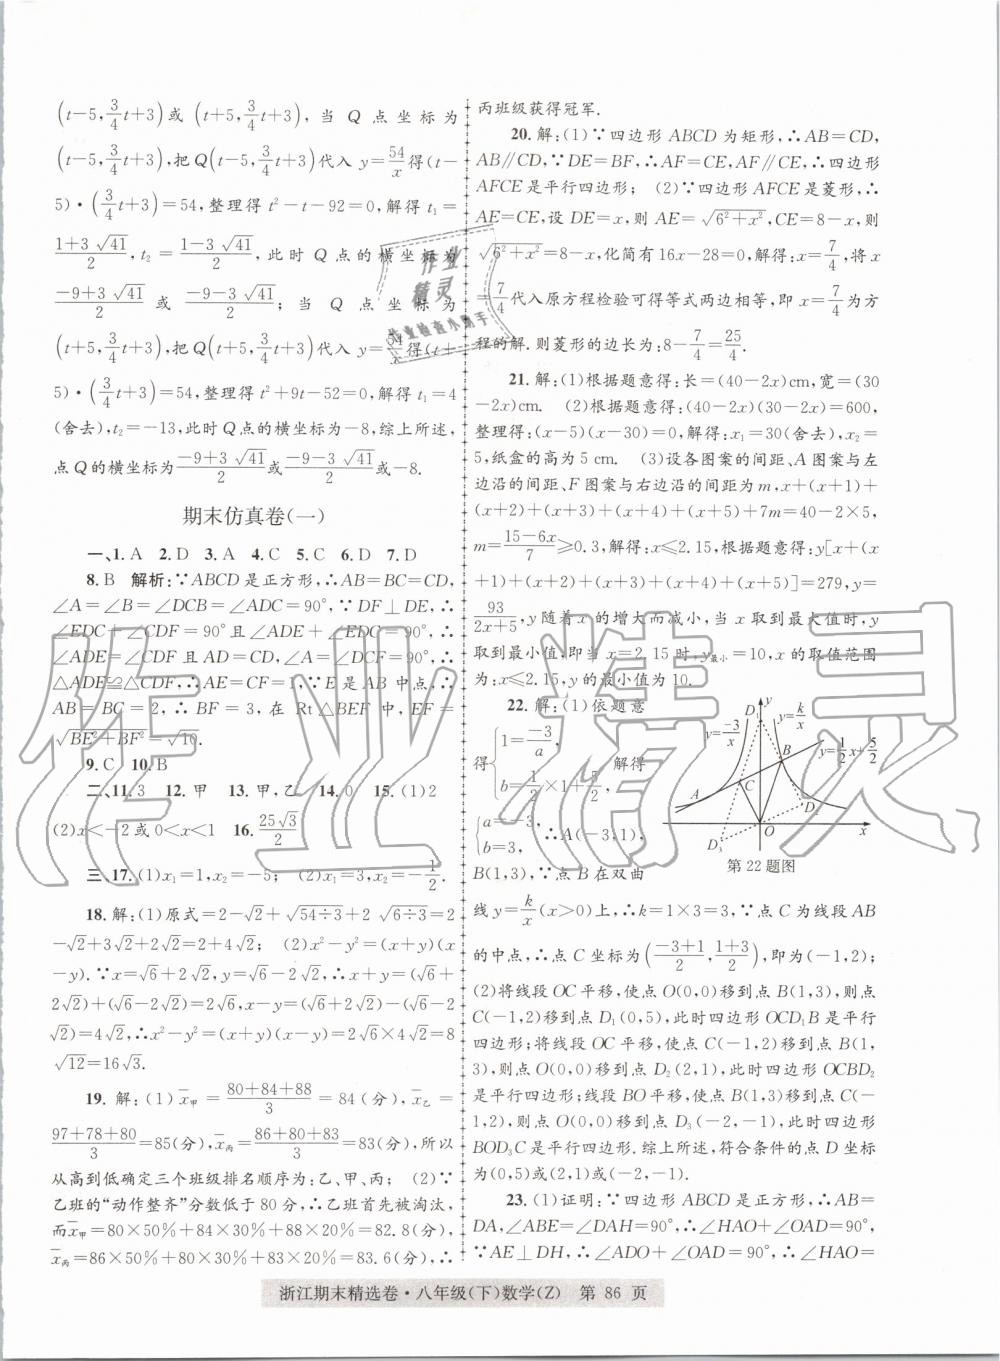 (t-5, 3/4 t+3)或(t+5, 3/4 t+3),当 Q 点坐标为
(t-5, 3/4 t+3),把 Q(t-5, 3/4 t+3)代入 y=54/x 得(t-
5)·(3/4 t+3)=54,整理得 t²-t-92=0,解得 t₁=
(1+3√41)/2, t₂=(1-3√41)/2,此时 Q 点的横坐标为
(-9+3√41)/2 或 (-9-3√41)/2;当 Q 点坐标为
(t+5, 3/4 t+3),把 Q(t+5, 3/4 t+3)代入 y=54/x 得(t+
5)·(3/4 t+3)=54,整理得 t²+9t-52=0,解得 t₁=4
(舍去),t₂=-13,此时 Q点的横坐标为-8,综上所述,
点Q的横坐标为(-9+3√41)/2或(-9-3√41)/2或-8.
期末仿真卷(一)
一、1. A 2. D 3. A 4. C 5. C 6. D 7. D
8. B 解析:∵ABCD是正方形,∴AB=BC=CD,
∠A=∠B=∠DCB=∠ADC=90°,∵DF⊥DE,∴
∠EDC+∠CDF=90°且∠ADE+∠EDC=90°,∴
∠ADE=∠CDF 且 AD=CD,∠A=∠DCF=90°,∴
△ADE≌△CDF,∴AE=CF=1,∵E 是 AB 中点,∴
AB=BC=2,∴BF=3,在 Rt△BEF 中,EF=
√(BE²+BF²)=√10.
9. C 10. B
二、11. 3 12. 甲 13. 甲,乙 14. 0 15. (1)2
(2)x<-2或0<x<1 16. 25√3/2
三、17. (1)x₁=1,x₂=-5; (2)x₁=3,x₂=-1/2.
18. 解:(1)原式=2-√2+√(54÷3)+2√(6÷3)=2
-√2+3√2+2√2=2+4√2; (2)x²-y²=(x+y)(x
-y). ∵x=√6+2√2,y=√6-2√2,∴x+y=(√6+
2√2)+(√6-2√2)=2√6,x-y=(√6+2√2)-(√6-
2√2)=4√2,∴x²-y²=(x+y)(x-y)=2√6×4√2=8
√12=16√3.
19. 解:(1)x̄甲=(80+84+88)/3=84(分),x̄乙=
(97+78+80)/3=85(分),x̄丙=(86+80+83)/3=83(分),所以
从高到低确定三个班级排名顺序为:乙、甲、丙; (2)∵
乙班的“动作整齐”分数低于80分,∴乙班首先被淘汰,
而x̄甲=80×50%+84×30%+88×20%=82.8(分),
x̄丙=86×50%+80×30%+83×20%=83.6(分),∴
丙班级获得冠军.
20. 解:(1)∵四边形 ABCD 为矩形,∴AB=CD,
AB∥CD,∵DE=BF,∴AF=CE,AF∥CE,∴四边形
AFCE是平行四边形; (2)∵四边形 AFCE是菱形,∴
AE=CE,设 DE=x,则 AE=√(6²+x²),CE=8-x,则
√(6²+x²)=8-x,化简有16x-28=0,解得:x=7/4,将 x
=7/4代入原方程检验可得等式两边相等,即 x=7/4为方
程的解. 则菱形的边长为:8-7/4=25/4.
21. 解:(1)根据题意得:长=(40-2x)cm,宽=(30
-2x)cm. (2)根据题意得:(40-2x)(30-2x)=600,
整理得:(x-5)(x-30)=0,解得:x₁=30(舍去),x₂=
5,纸盒的高为5 cm. (3)设各图案的间距、A 图案与左
边沿的间距、F 图案与右边沿的间距为m,x+(x+1)+
(x+2)+(x+3)+(x+4)+(x+5)+7m=40-2×5,
m=(15-6x)/7≥0.3,解得:x≤2.15,根据题意得:y[x+(x
+1)+(x+2)+(x+3)+(x+4)+(x+5)]=279,y=
93/(2x+5),y 随着 x 的增大而减小,当 x 取到最大值时,y
取到最小值,即当 x=2.15时,y最小=10,x的取值范围
为:x≤2.15,y的最小值为10.
22. 解:(1)依题意
得{1=-3/a, b=1/2×1+5/2, 解得
{a=-3, b=3, ∴A(-3,1),
B(1,3),∵点 B 在双曲
y=-3/x D₁ y y=k/x
y=1/2 x+5/2
A B C D₂
O x
D₃
第22题图
线y=k/x(x>0)上,∴k=1×3=3,∵点 C 为线段 AB
的中点,∴点 C 坐标为((-3+1)/2,(1+3)/2),即为(-1,2);
(2)将线段 OC 平移,使点O(0,0)移到点 B(1,3),则点
C(-1,2)移到点 D₁(0,5),此时四边形OCD₁B 是平行
四边形;将线段 OC 平移,使点 C(-1,2)移到点 B(1,
3),则点O(0,0)移到点 D₂(2,1),此时四边形 OCBD₂
是平行四边形;线段 BO 平移,使点 B(1,3)移到点 C(-
1,2),则点 O(0,0)移到点 D₃(-2,-1),此时四边形
BOD₃C是平行四边形. 综上所述,符合条件的点 D 坐标
为(0,5)或(2,1)或(-2,-1).
23. (1)证明:∵四边形 ABCD 是正方形,∴AB=
DA,∠ABE=∠DAH=90°,∴∠HAO+∠OAD=90°,
∵AE⊥DH,∴∠ADO+∠OAD=90°,∴∠HAO=
浙江期末精选卷·八年级(下)数学(Z) 第 86 页
作业精灵
作业精灵
作业检查小助手